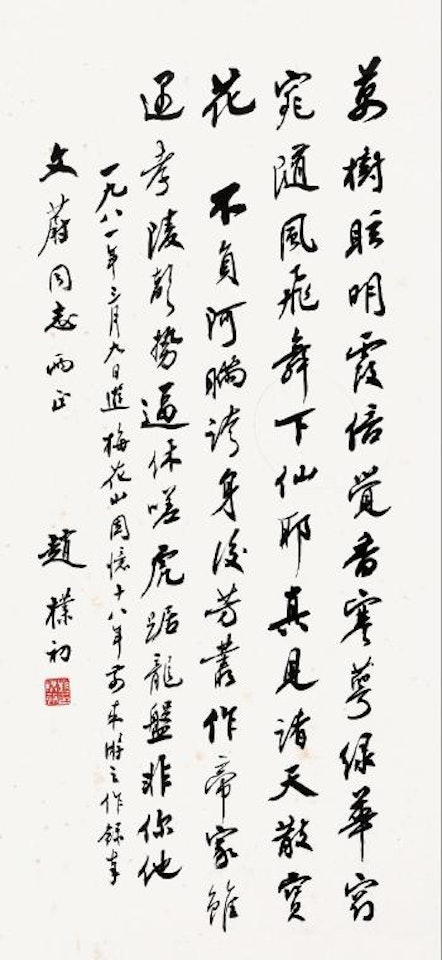 萬樹眩明霞倍覺香寒萼绿華窈
窕隨風飛舞下仙耶真見諸天散寶
花 不負阿瞞誇身後芳叢作帝家雖
孝陵勢逼休嗟虎踞龍盤非你他
一九八一年三月九日遊梅花山因憶十八年前來游之作録奉
文蔚同志兩正 趙樸初